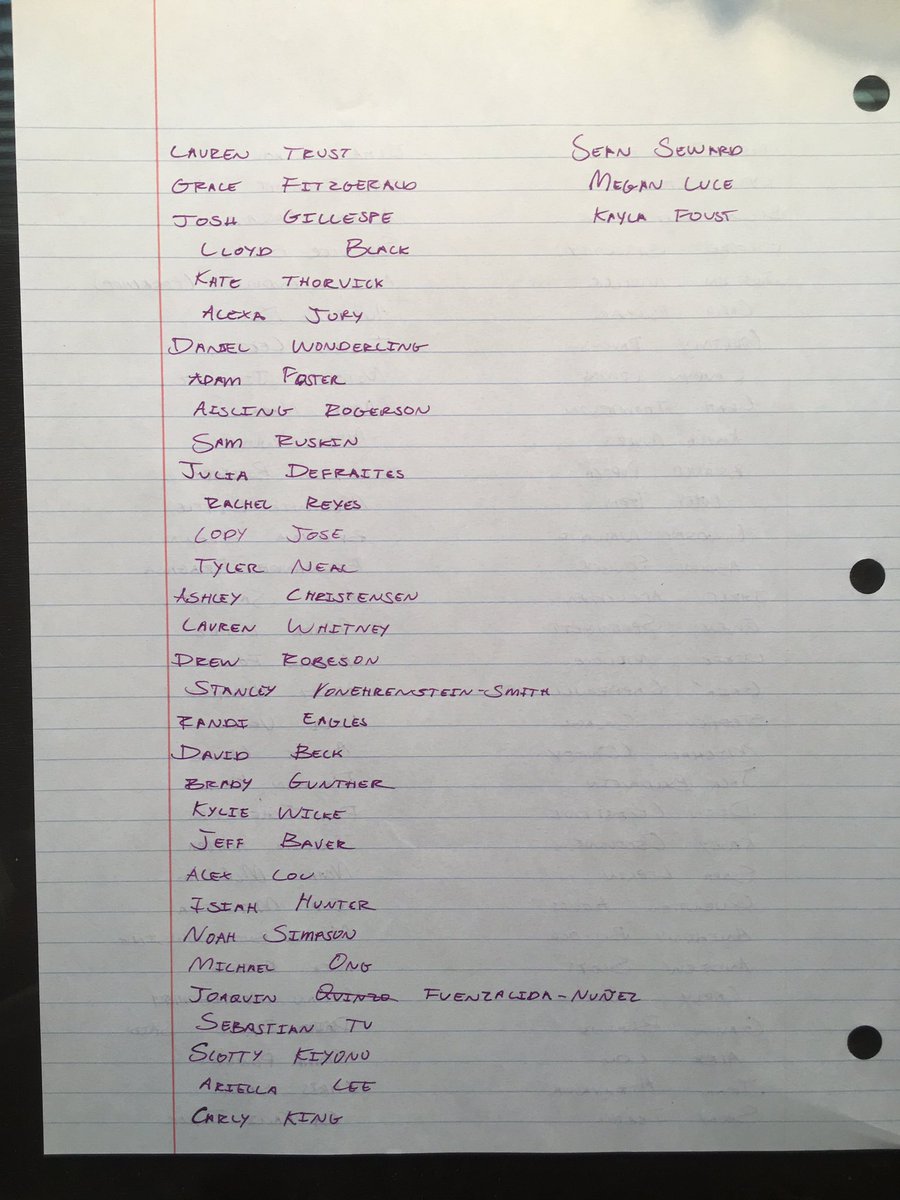 LAUREN TRUST
GRACE FITZGERALD
JOSH GILLESPE
LLOYD BLACK
KATE THORVICK
ALEXA JURY
DANIEL WONDERLING
ADAM FOSTER
AISLING ROGERSON
SAM RUSKIN
JULIA DEFRAITES
RACHEL REYES
CODY JOSE
TYLER NEAL
ASHLEY CHRISTENSEN
LAUREN WHITNEY
DREW ROBESON
STANLEY VONEHRENSTEIN-SMITH
RANDI EAGLES
DAVID BECK
BRADY GUNTHER
KYLIE WILKE
JEFF BAUER
ALEX COU
ISIAH HUNTER
NOAH SIMPSON
MICHAEL ONG
JOAQUIN QUINZO FUENZALIDA-NUÑEZ
SEBASTIAN TU
SCOTTY KIYONO
ARIELLA LEE
CARLY KING
SEAN SEWARD
MEGAN LUCE
KAYLA FOUST